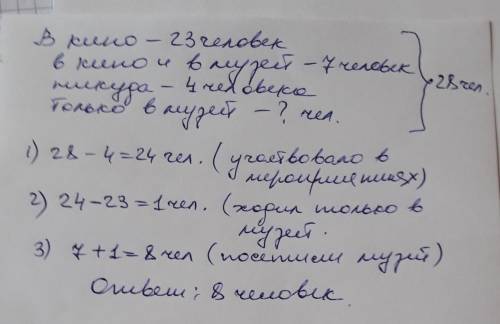 В кино – 23 человек
в кино и в музей – 7 человек
никуда – 4 человека
только в музей – ? чел.
28 чел.
1) 28 – 4 = 24 чел. ( участвовало в
мероприятиях)
2) 24 – 23 = 1 чел. (ходил только в
музей.
3) 7 + 1 = 8 чел (посетили музей)
Ответ: 8 человек.